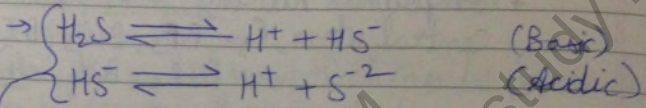 → { H₂S ⇌ H⁺ + HS⁻ (Basic)
HS⁻ ⇌ H⁺ + S⁻² (Acidic)
study